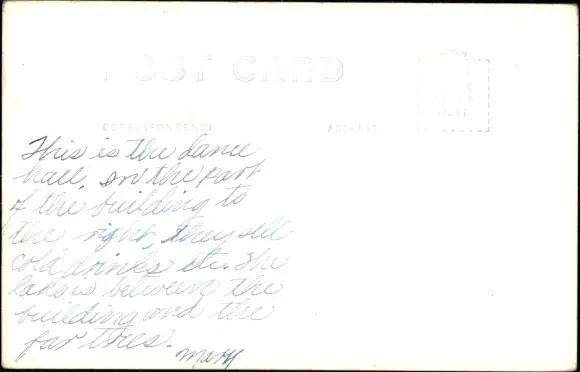 POST CARD
PLACE
STAMP
HERE
CORRESPONDENCE
ADDRESS
This is the dance
hall, on the part
of the building to
the right, they sell
cold drinks etc. The
lake is between the
building and the
far trees.
Mary